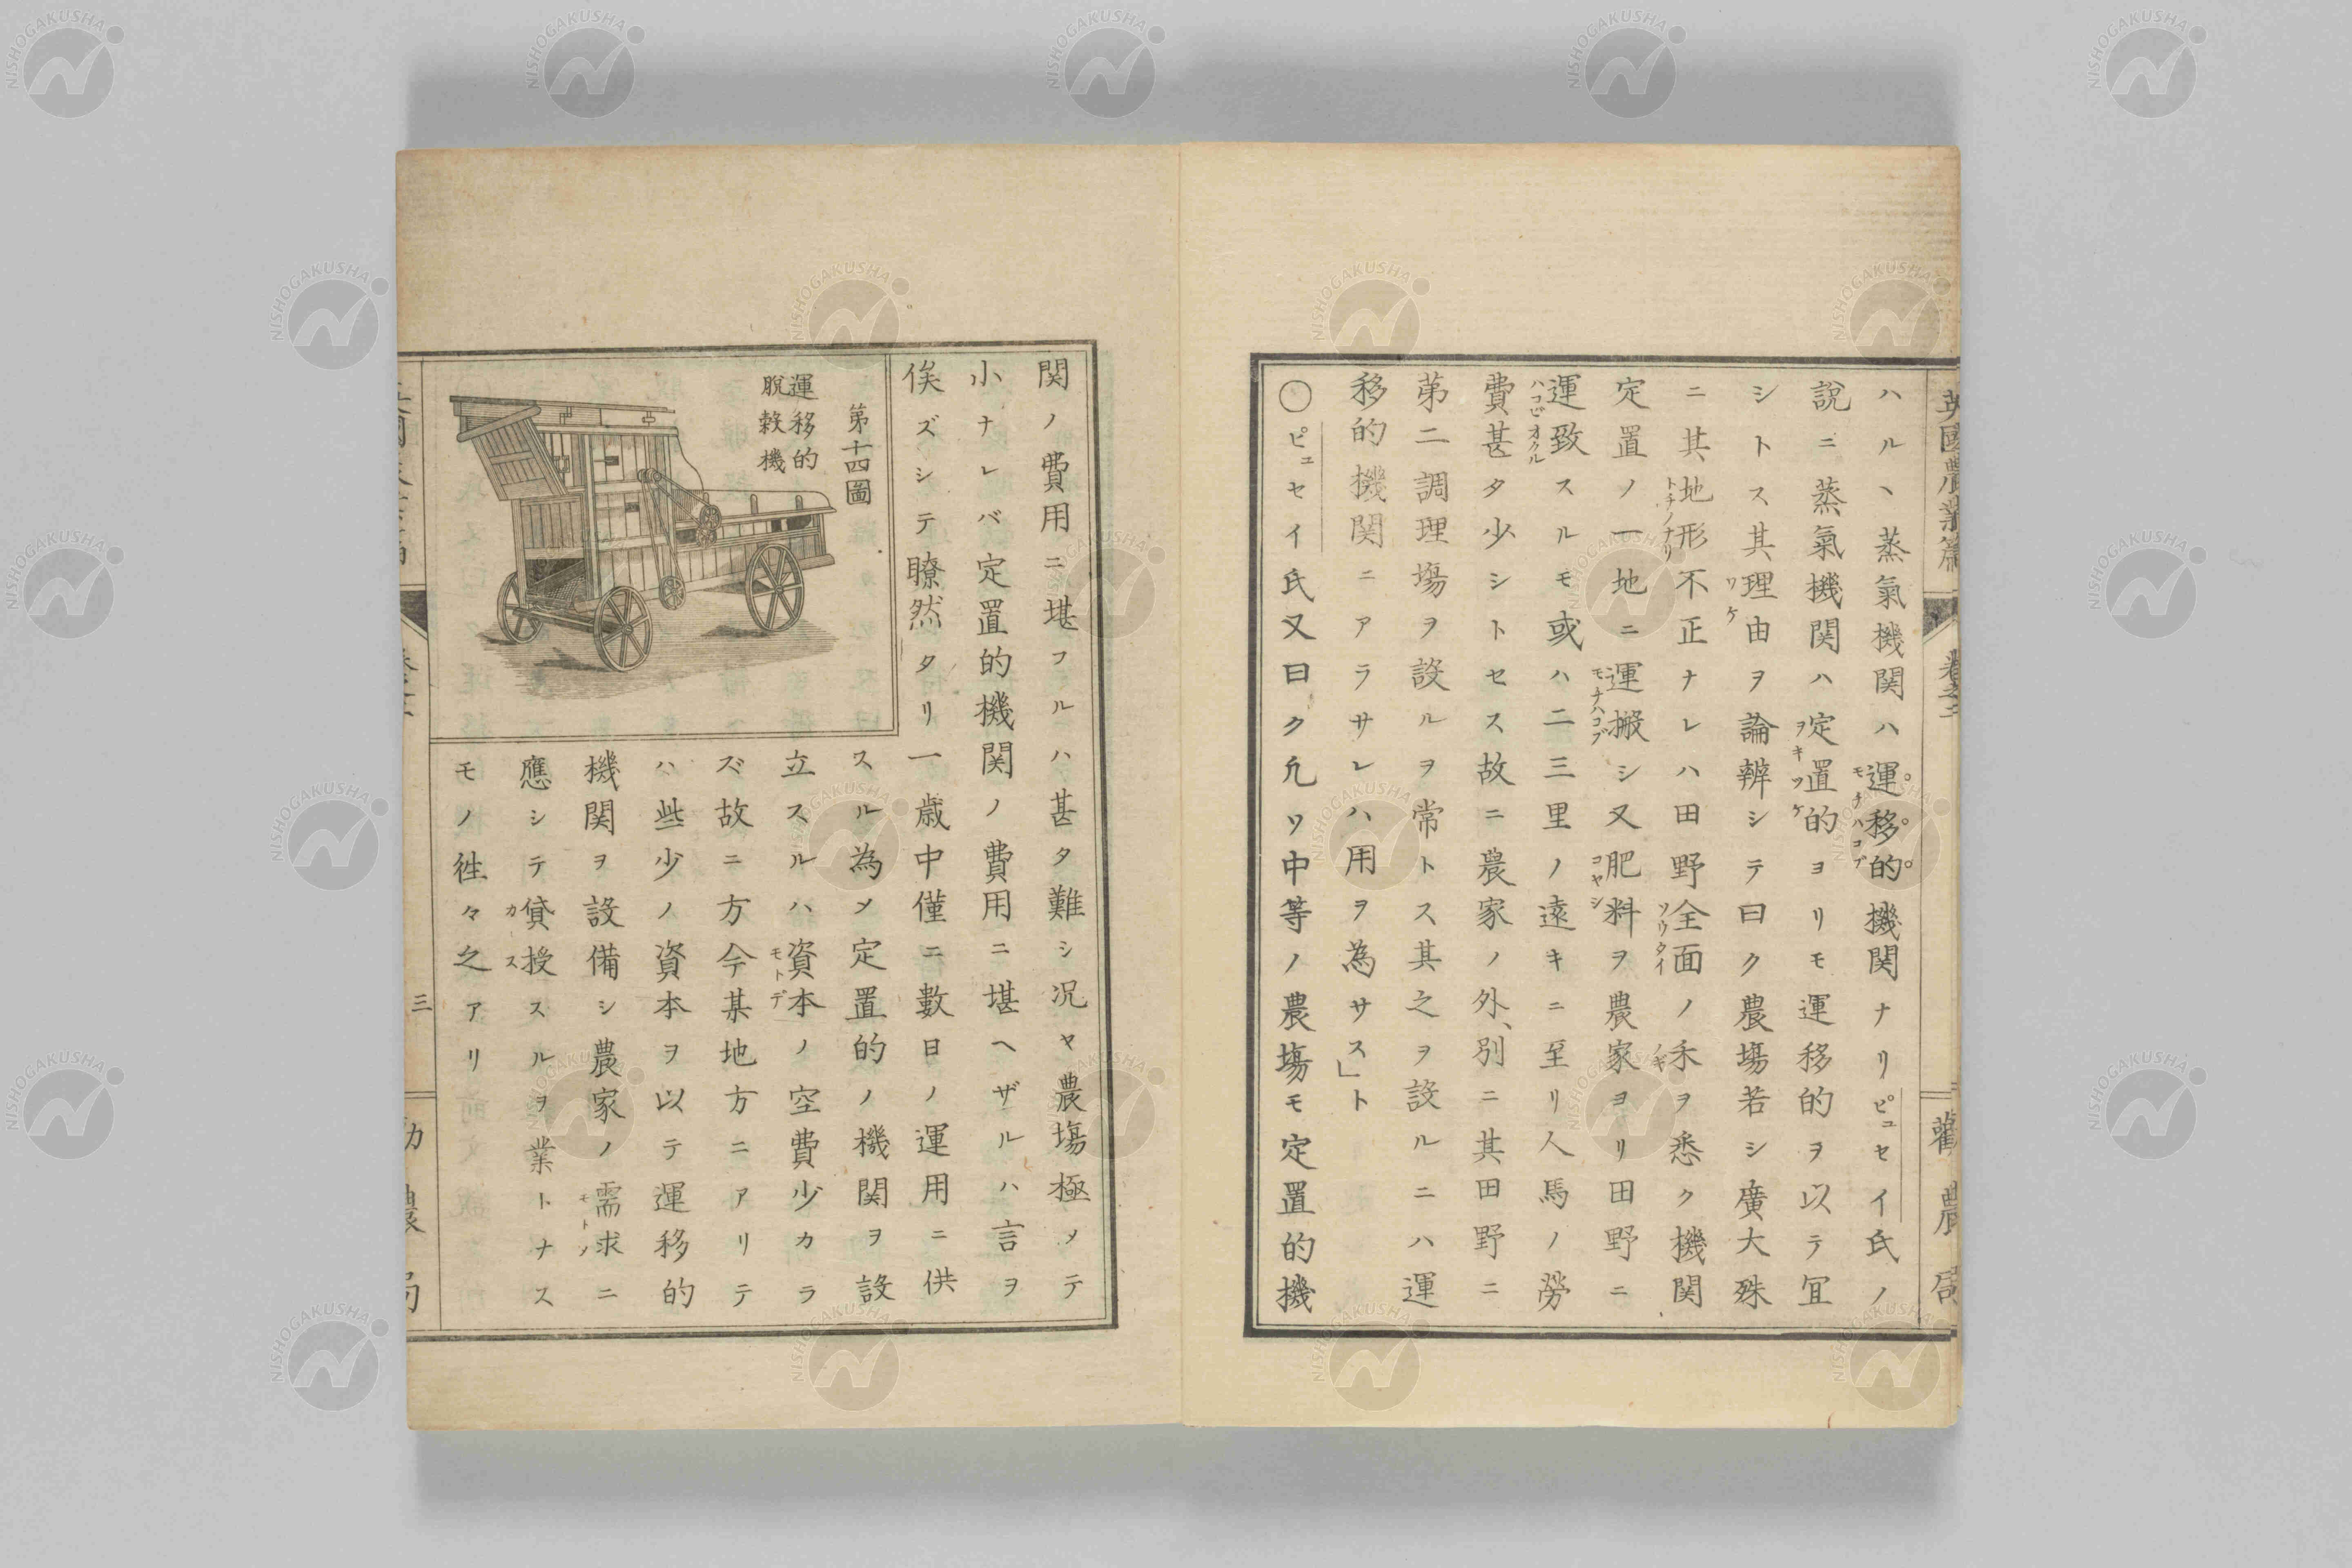 英國農業篇
卷之二
勸農局
ハルヽ蒸氣機関ハ運移的機関ナリピュセイ氏ノ
説ニ蒸氣機関ハ定置的ヨリモ運移的ヲ以テ冝
シトス其理由ヲ論辨シテ曰ク農塲若シ廣大殊
ニ其地形不正ナレハ田野全面ノ禾ヲ悉ク機関
定置ノ一地ニ運搬シ又肥料ヲ農家ヨリ田野ニ
運致スルモ或ハ二三里ノ遠キニ至リ人馬ノ勞
費甚タ少シトセス故ニ農家ノ外、別ニ其田野ニ
苐二調理塲ヲ設ルヲ常トス其之ヲ設ルニハ運
移的機関ニアラサレハ用ヲ為サス」ト
〇ピュセイ氏又曰ク凢ソ中等ノ農塲モ定置的機
モナハコブ
ヲキツケ
ワケ
トチノナリ
ソウタイ
ノギ
モチハコブ
コヤシ
ハコビオクル
関ノ費用ニ堪フルハ甚タ難シ况ヤ農塲極メテ
小ナレバ定置的機関ノ費用ニ堪ヘザルハ言ヲ
俟ズシテ瞭然タリ一歳中僅ニ數日ノ運用ニ供
スル為メ定置的ノ機関ヲ設
立スルハ資本ノ空費少カラ
ズ故ニ方今某地方ニアリテ
ハ些少ノ資本ヲ以テ運移的
機関ヲ設備シ農家ノ需求ニ
應シテ貸授スルヲ業トナス
モノ徃々之アリ
モトデ
モトメ
カス
苐十四圖
運移的
脫穀機
三
NISHOGAKUSHA